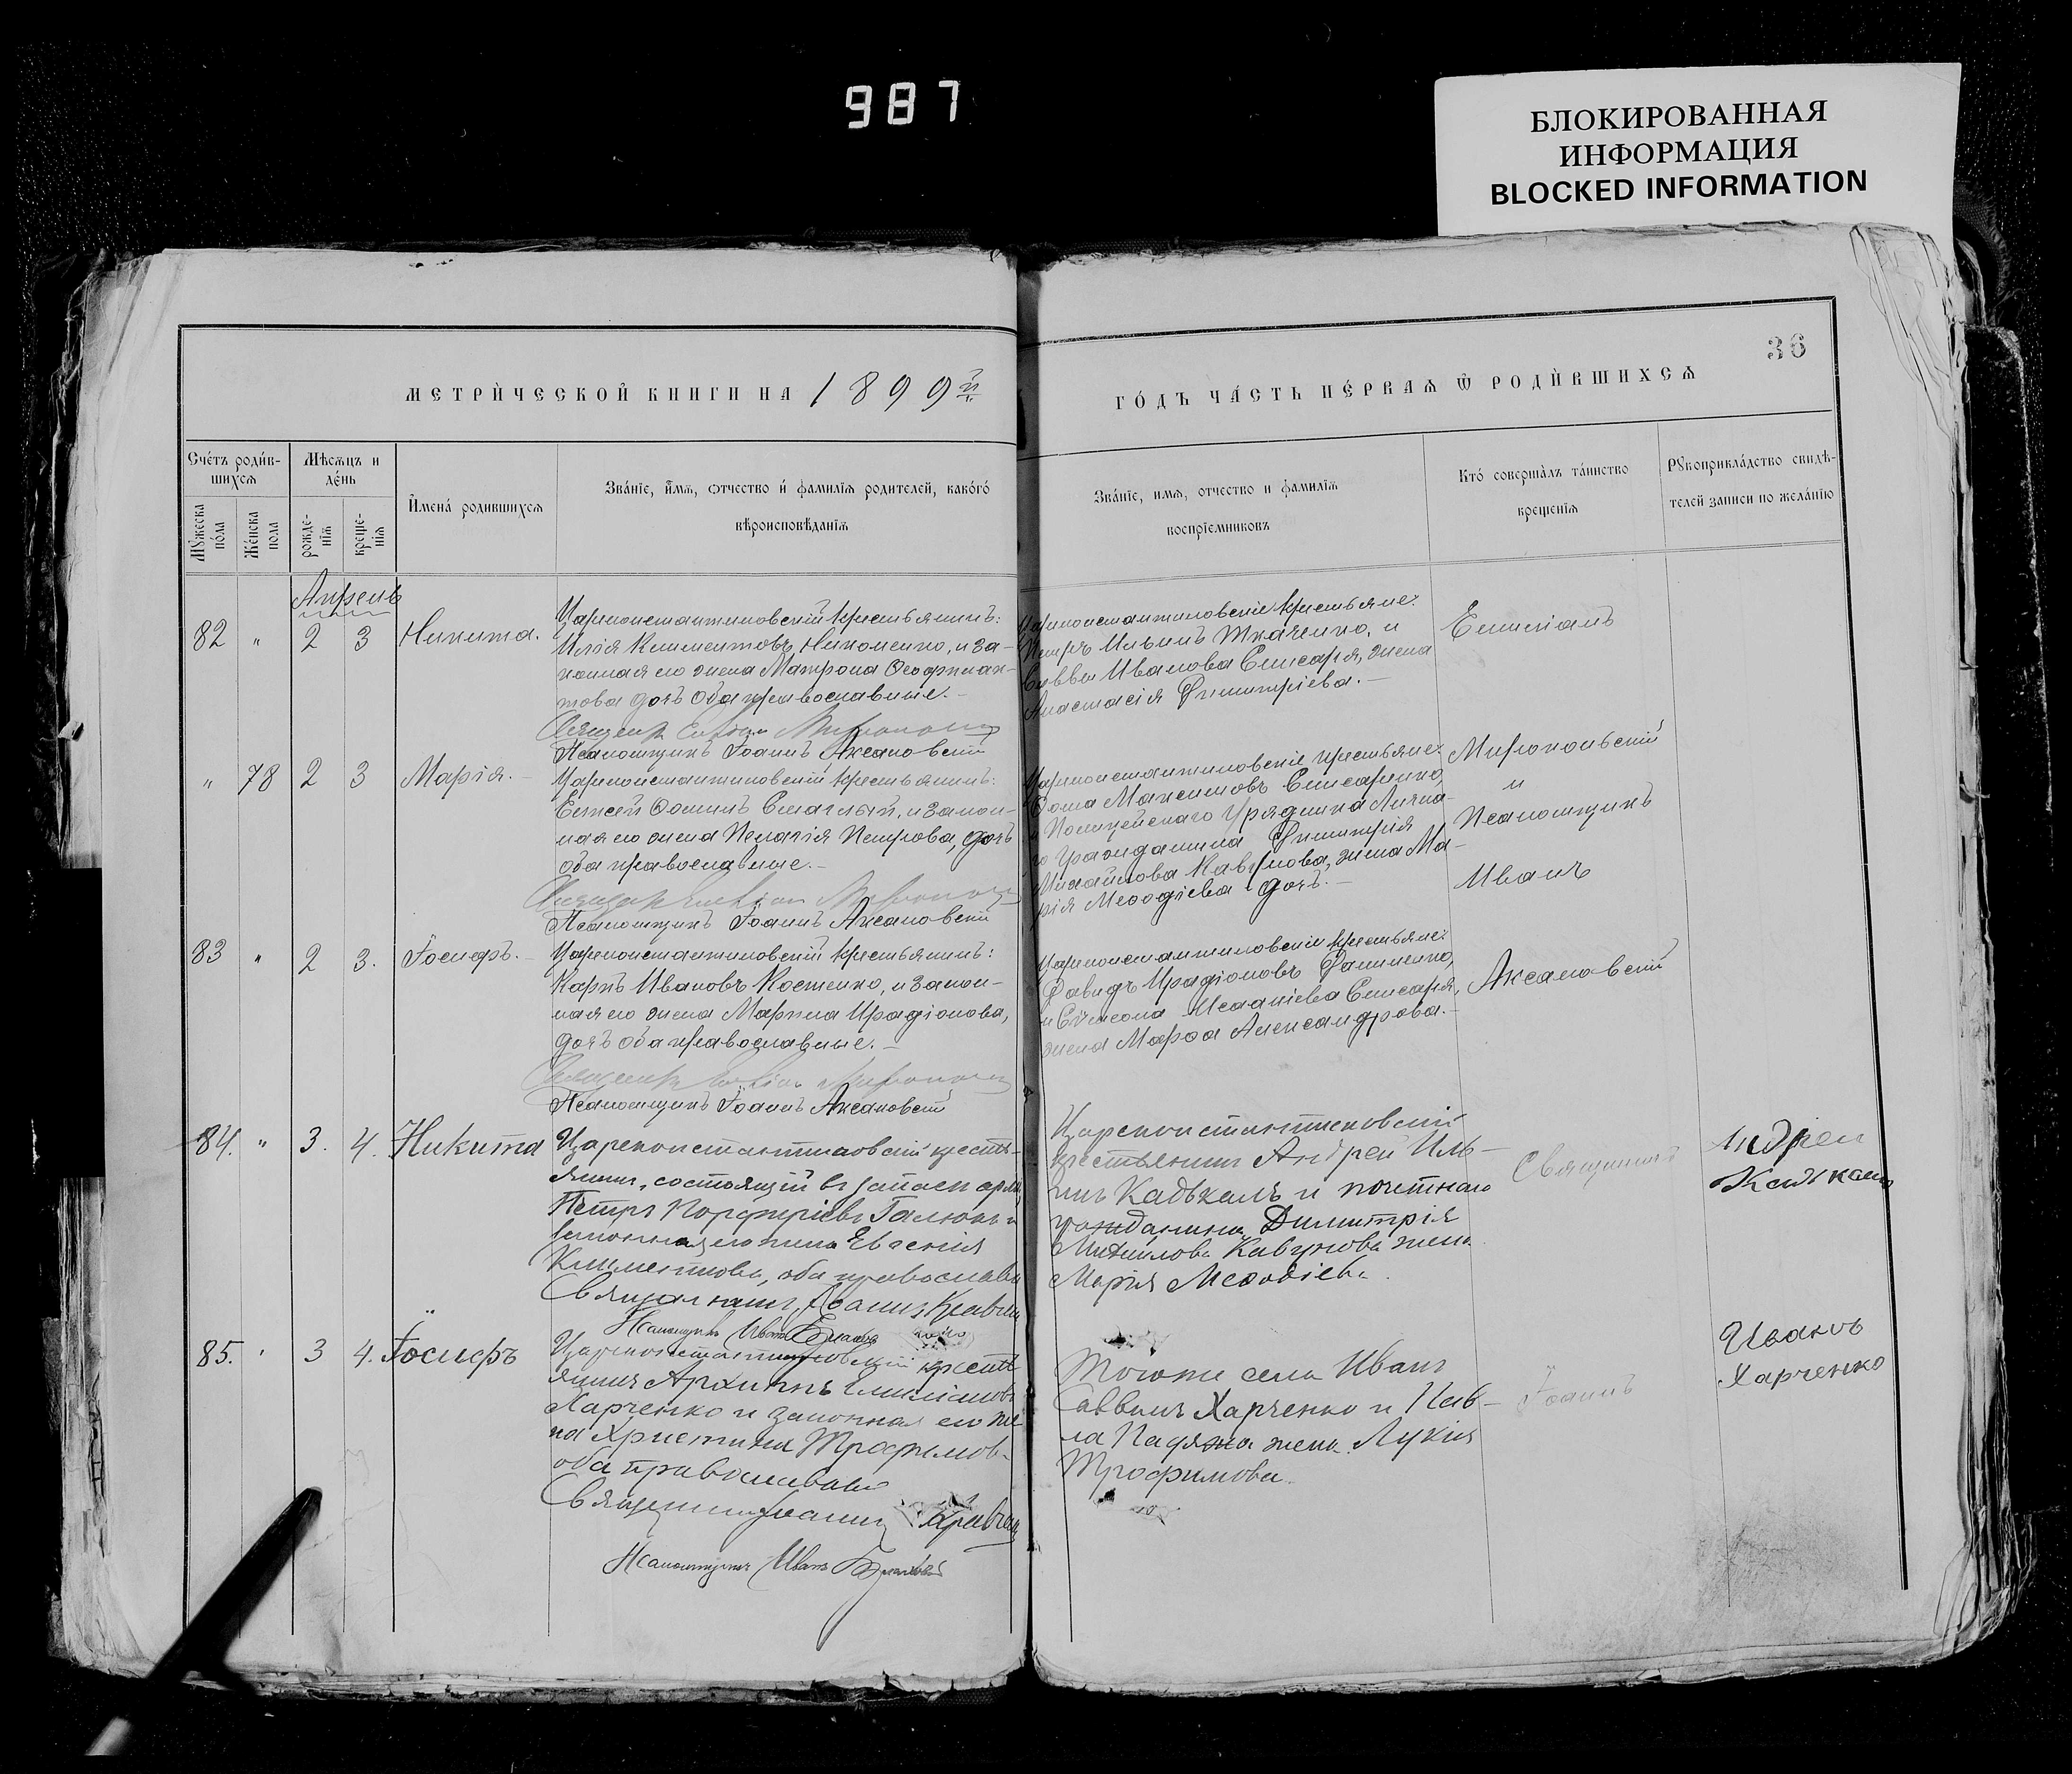 987
БЛОКИРОВАННАЯ
ИНФОРМАЦИЯ
BLOCKED INFORMATION
36
МЕТРИ́ЧЕСКОЙ КНИГИ НА 1899й
ГО́ДЪ ЧА́СТЬ ПЕ́РВАѦ Ѿ РОДИ́ВШИХСѦ
Сче́тъ роди́в-
шихсѧ
Мѣсѧцъ и
де́нь
Мꙋжеска
по́ла
Же́нска
пола
рожде-
нїѧ
креще-
нїѧ
И҆мена́ родившихсѧ
Зва́нїе, и҆́мѧ, ѻтчество и҆ фамилїѧ родителей, како́гѡ
вѣроисповѣданїѧ
Зва́нїе, имѧ, отчество и фамилїѧ
воспрїемниковъ
Кто́ соверша̀лъ та́инство
крещенїѧ
Рꙋкоприкла́дство свидѣ-
телей записи по жела́нїю
Апрель
82 " 2 3 Никита.
Цареконстантиновскій крестьянинъ:
Илія Климентовъ Никоненко, и за-
конная его жена Матрона Ѳеофилак-
това дочь оба православные.-
Псаломщикъ Іоаннъ Аксановскій
Цареконстантиновскіе крестьяне:
Петръ Ильинъ Ткаченко, и
Саввы Иванова Слисаря, жена
Анастасія Димитріева.-
" 78 2 3 Марія.-
Цареконстантиновскій крестьянинъ:
Елисей Ѳоминъ Смаглый, и закон-
ная его жена Пелагія Петрова, дочь
оба православные.-
Псаломщикъ Іоаннъ Аксановскій
Цареконстантиновскіе крестьяне:
Ѳома Максимовъ Слисаренко,
и Полицейскаго Урядника Лична-
го Гражданина Димитрія
Михайлова Кавунова, жена Ма-
рія Меѳодіева дочь.-
83 " 2 3. Іосифъ.-
Цареконстантиновскій крестьянинъ:
Карпъ Ивановъ Костенко, и закон-
ная его жена Марина Иродіонова,
дочь оба православные.-
Псаломщикъ Іоаннъ Аксановскій
Цареконстантиновскіе крестьяне:
Давидъ Иродіоновъ Даниленко,
и Сѵмеона Исаакіева Слисаря,
жена Марѳа Александрова.-
Емиліанъ
Миропольскій
и
Псаломщикъ
Иванъ
Аксановскій
84. " 3. 4. Никита
Цареконстантиновскій кресть-
янинъ, состоящій въ запасѣ арміи
Петръ Порфиріевъ Галюкъ и
законная его жена Евгенія
Климентова, оба православн
Священникъ Іоаннъ Кравчен
Псаломщикъ Иванъ
Цареконстантиновскій
крестьянинъ Андрей Иль-
инъ Кадькалъ и почетнаго
гражданина Димитрія
Михайлова Кавунова жена
Марія Меѳодіева.
Священникъ
Андрей
Кадькалъ
85. " 3 4. Іосифъ
Цареконстантиновскій кресть
янинъ Архиппъ Емиліановъ
Харченко и законная его же
на Христина Трофимов-
оба православные
Священникъ Іоаннъ Кравчен
Псаломщикъ Иванъ
Тогоже села Иванъ
Саввинъ Харченко и Пав-
ла жена Лукія
Трофимова.
Іоаннъ
Иванъ
Харченко